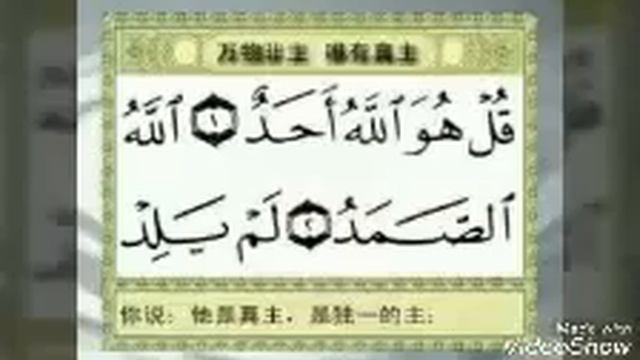 万物非主 唯有真主
قُلْ هُوَ ٱللَّهُ أَحَدٌ ١ ٱللَّهُ
ٱلصَّمَدُ ٢ لَمْ يَلِدْ
你说：他是真主，是独一的主；
Made with
VideoShow